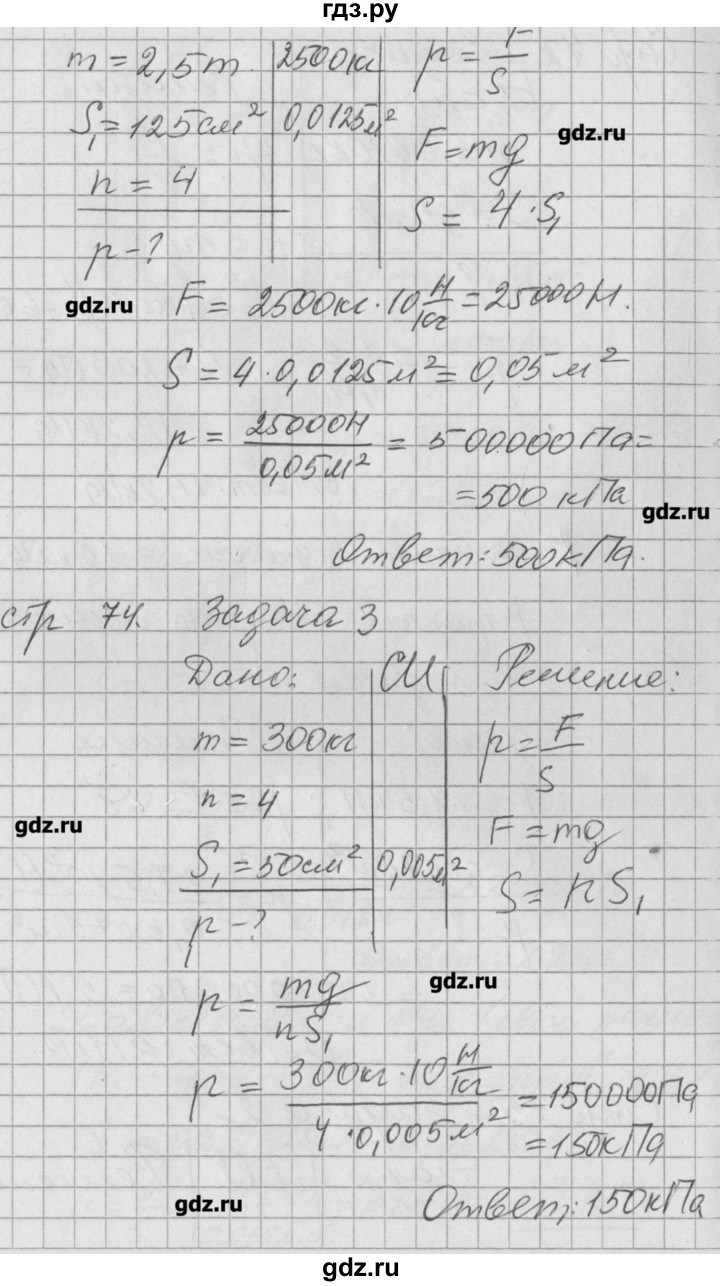 гдз.ру
m = 2,5т 2500кг p = F/S
S₁ = 125см² 0,0125м²
gdz.ru
n = 4 F = mg
S = 4 · S₁
p - ?
gdz.ru
F = 2500кг · 10 Н/кг = 25000Н.
S = 4 · 0,0125м² = 0,05м²
p = 25000Н / 0,05м² = 500000Па =
= 500 кПа
gdz.ru
Ответ: 500кПа.
стр 74. Задача 3
Дано: СИ Решение:
m = 300кг p = F/S
n = 4
gdz.ru
F = mg
S₁ = 50см² 0,005м² S = nS₁
p - ?
gdz.ru
p = mg / nS₁
p = 300кг · 10 Н/кг / 4 · 0,005м² = 150000Па
= 150кПа
gdz.ru
Ответ: 150кПа
gdz.ru